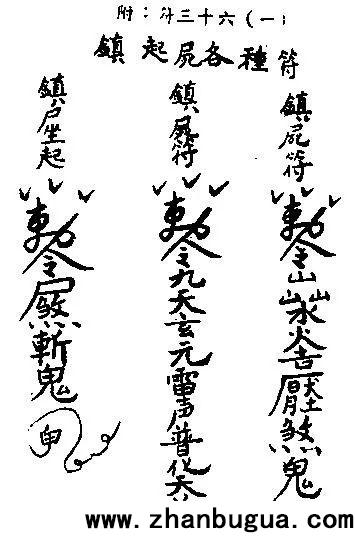 附：三十六（一）
鎮起屍各種符
鎮屍符
勅令山山山水火煞鬼
鎮符
勅令九天玄元雷声普化天
鎮尸坐起
勅令斬鬼
www.zhanbugua.com